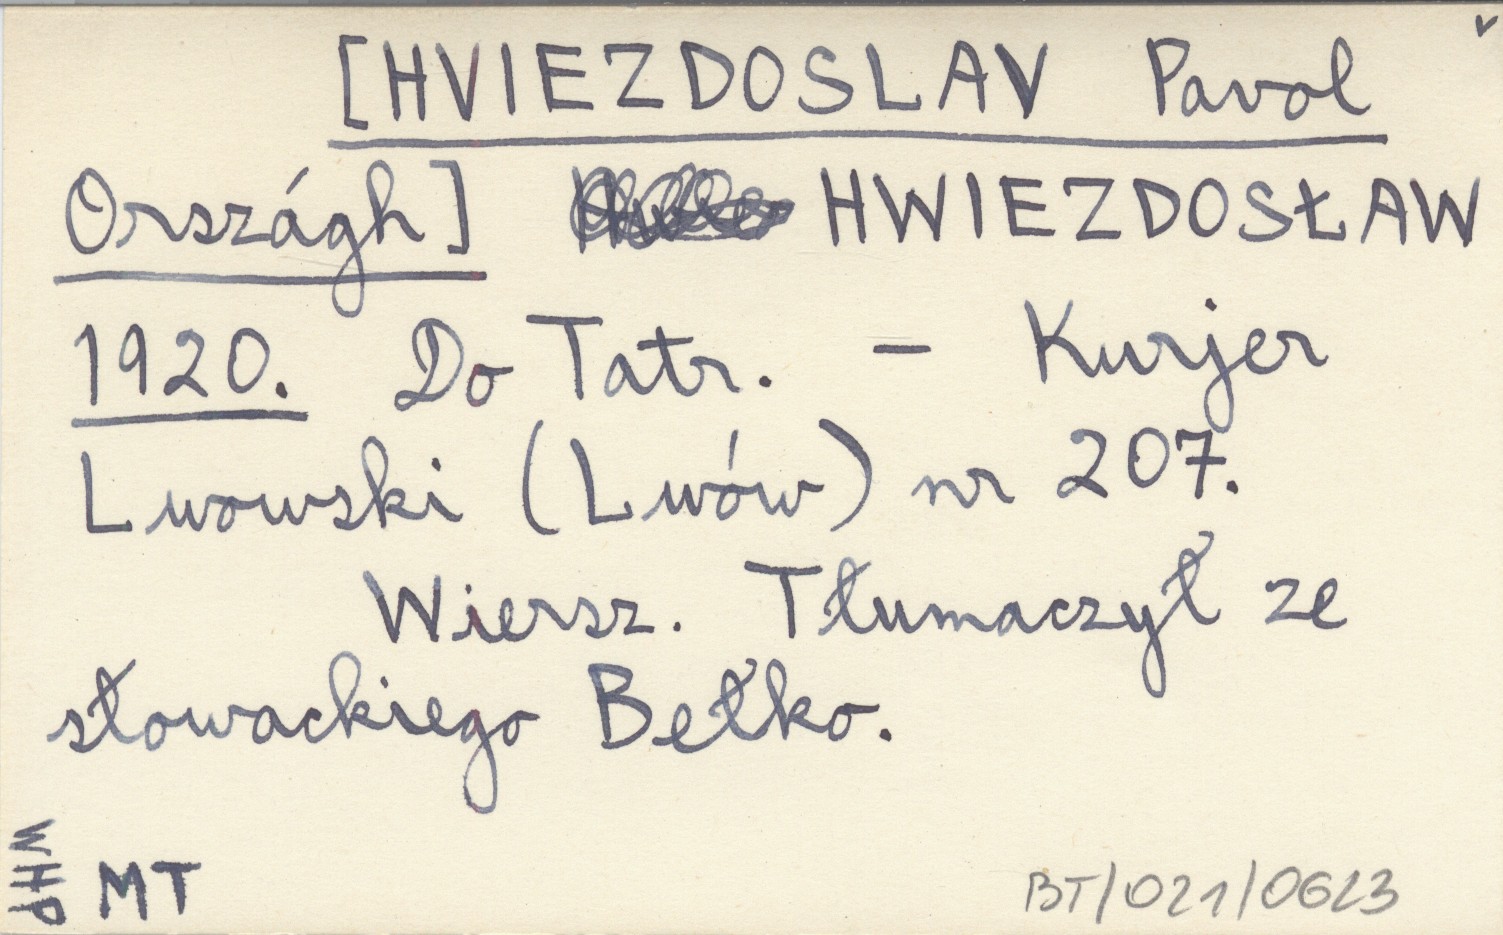 [HVIEZDOSLAV Pavol
Országh] HWIEZDOSŁAW
1920. Do Tatr. – Kurjer
Lwowski (Lwów) nr 207.
Wiersz. Tłumaczył ze
słowackiego Bełko.
WHP
MT
BT/021/0623